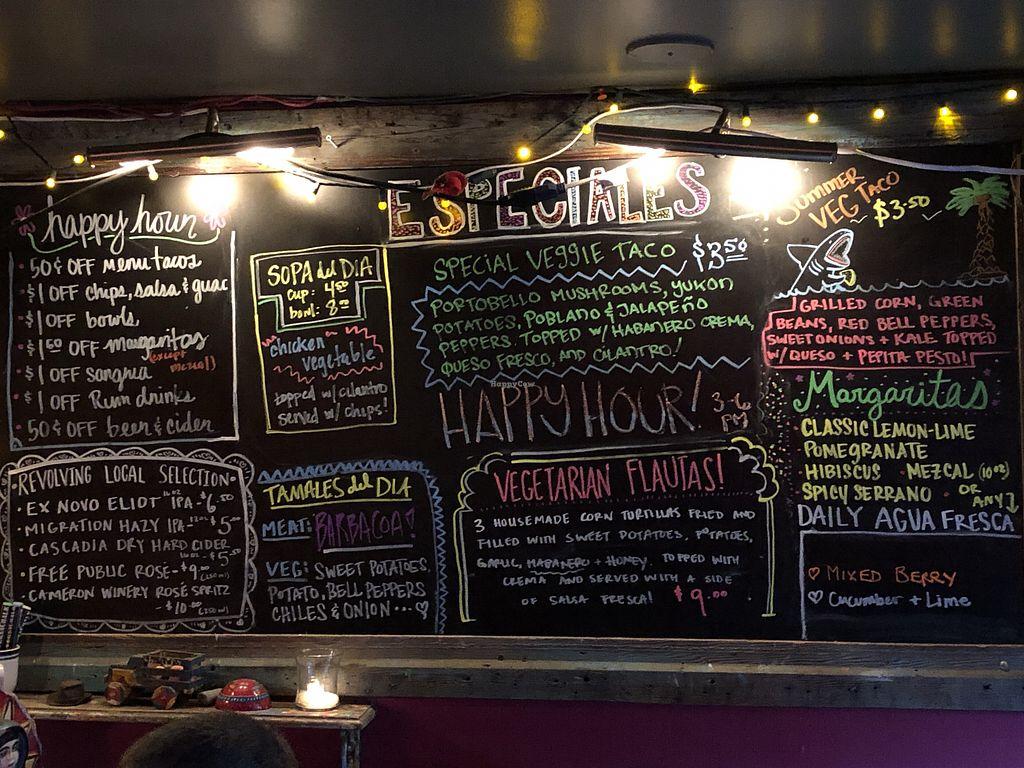 happy hour
· 50¢ OFF menu tacos
· $1 OFF chips, salsa & guac
· $1 OFF bowls
· $1 50 OFF margaritas
(except mezcal)
· $1 OFF sangria
· $1 OFF Rum drinks
· 50¢ OFF beer & cider
REVOLVING LOCAL SELECTION
· EX NOVO ELIOT IPA 16oz - $6.50
· MIGRATION HAZY IPA 12oz - $5.00
· CASCADIA DRY HARD CIDER
16oz - $5.50
· FREE PUBLIC ROSÉ - $9.00 (250ml)
· CAMERON WINERY ROSÉ SPRITZ
- $10.00 (250ml)
SOPA del DIA
cup: 4.50
bowl: 8.00
chicken
vegetable
topped w/ cilantro
served w/ chips!
TAMALES del DIA
MEAT: BARBACOA!
VEG: SWEET POTATOES,
POTATO, BELL PEPPERS
CHILES & ONION...♡
ESPECIALES
SPECIAL VEGGIE TACO $3.50
PORTOBELLO MUSHROOMS, YUKON
POTATOES, POBLANO & JALAPEÑO
PEPPERS. TOPPED W/ HABANERO CREMA,
QUESO FRESCO, AND CILANTRO!
HappyCow
HAPPY HOUR! 3-6 PM
VEGETARIAN FLAUTAS!
3 HOUSEMADE CORN TORTILLAS FRIED AND
FILLED WITH SWEET POTATOES, POTATOES,
GARLIC, HABANERO + HONEY. TOPPED WITH
CREMA AND SERVED WITH A SIDE
OF SALSA FRESCA! $9.00
SUMMER
VEG TACO
$3.50
GRILLED CORN, GREEN
BEANS, RED BELL PEPPERS,
SWEET ONIONS + KALE TOPPED
W/ QUESO + PEPITA-PESTO!
Margaritas
· CLASSIC LEMON-LIME
POMEGRANATE
HIBISCUS · MEZCAL (10oz)
SPICY SERRANO · OR ANY
DAILY AGUA FRESCA
♡ MIXED BERRY
♡ Cucumber + Lime